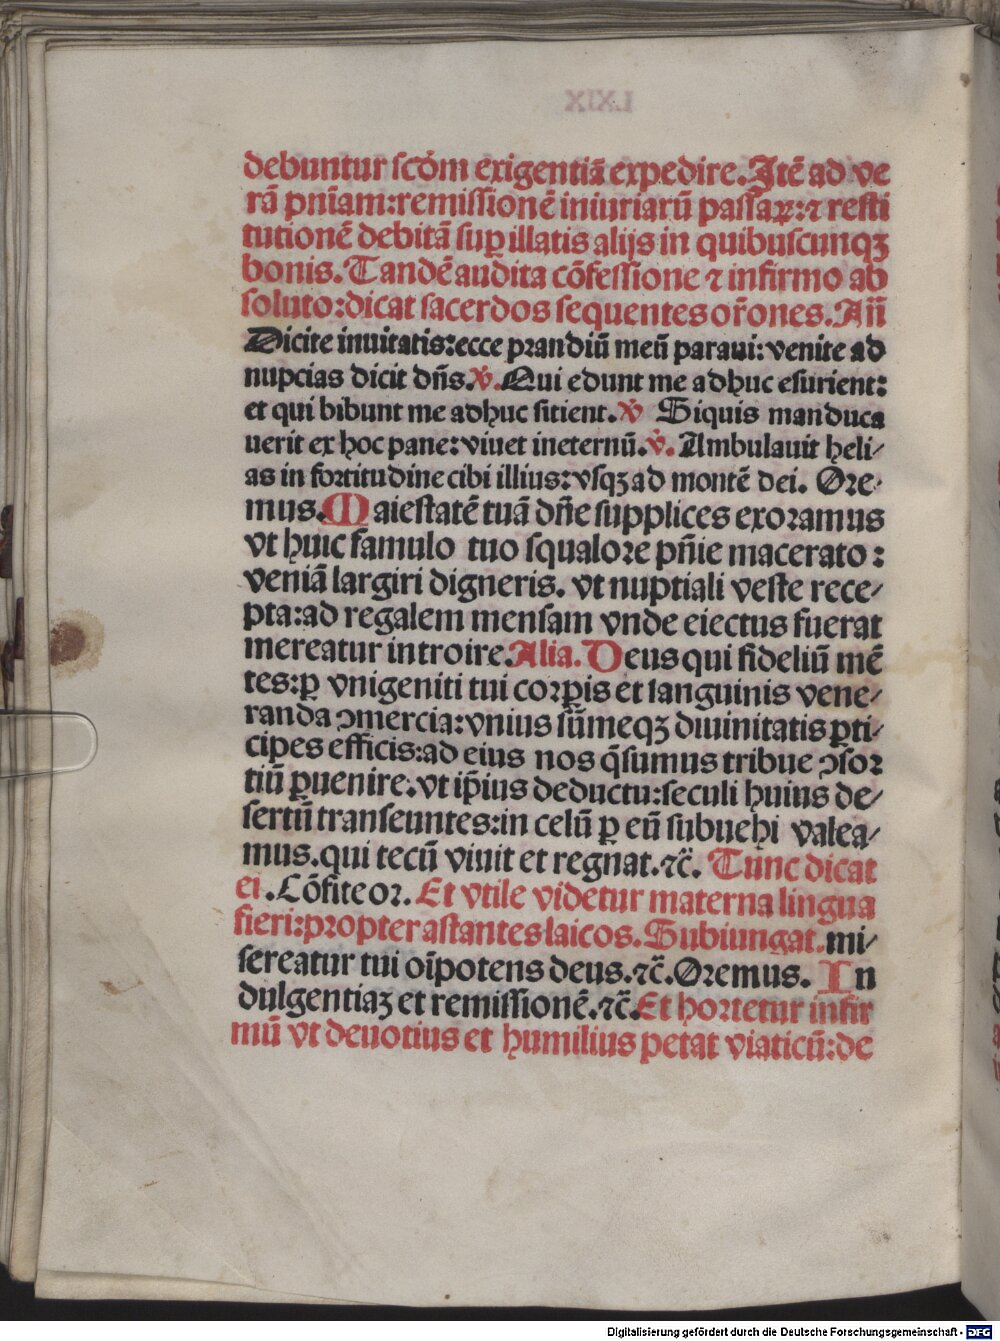 debuntur scd̄m exigentiā expedire. Itē ad ve
rā pn̄iam: remissionē iniuriarū passaꝝ: ⁊ resti
tutionē debitā suꝑ illatis alijs in quibuscunqꝫ
bonis. Tandē audita cōfessione ⁊ infirmo ab
soluto: dicat sacerdos sequentes or̄ones. An̄
Dicite inuitatis: ecce prandiū meū paraui: venite ad
nupcias dicit dn̄s. ℣. Qui edunt me adhuc esurient:
et qui bibunt me adhuc sitient. ℣ Siquis manduca
uerit ex hoc pane: viuet ineternū. ℣. Ambulauit heli⸗
as in fortitudine cibi illius: vsqꝫ ad montē dei. Ore⸗
mus. Maiestatē tuā dn̄e supplices exoramus
vt huic famulo tuo squalore pn̄ie macerato:
veniā largiri digneris. vt nuptiali veste rece⸗
pta: ad regalem mensam vnde eiectus fuerat
mereatur introire. Alia. Deus qui fideliū mē
tes: ꝑ vnigeniti tui corꝑis et sanguinis vene⸗
randa ꝯmercia: vnius sūmeqꝫ diuinitatis ꝑti⸗
cipes efficis: ad eius nos q̄sumus tribue ꝯsor
tiū ꝑuenire. vt ip̄ius deductu: seculi huius de⸗
sertū transeuntes: in celū ꝑ eū subuehi valea⸗
mus. qui tecū viuit et regnat. ⁊c̄. Tunc dicat
ei. Cōfiteor. Et vtile videtur materna lingua
fieri: propter astantes laicos. Subiungat. mi⸗
sereatur tui oīpotens deus. ⁊c̄. Oremus. In
dulgentiaꝫ et remissionē. ⁊c̄. Et hortetur infir
mū vt deuotius et humilius petat viaticū: de
Digitalisierung gefördert durch die Deutsche Forschungsgemeinschaft - DFG